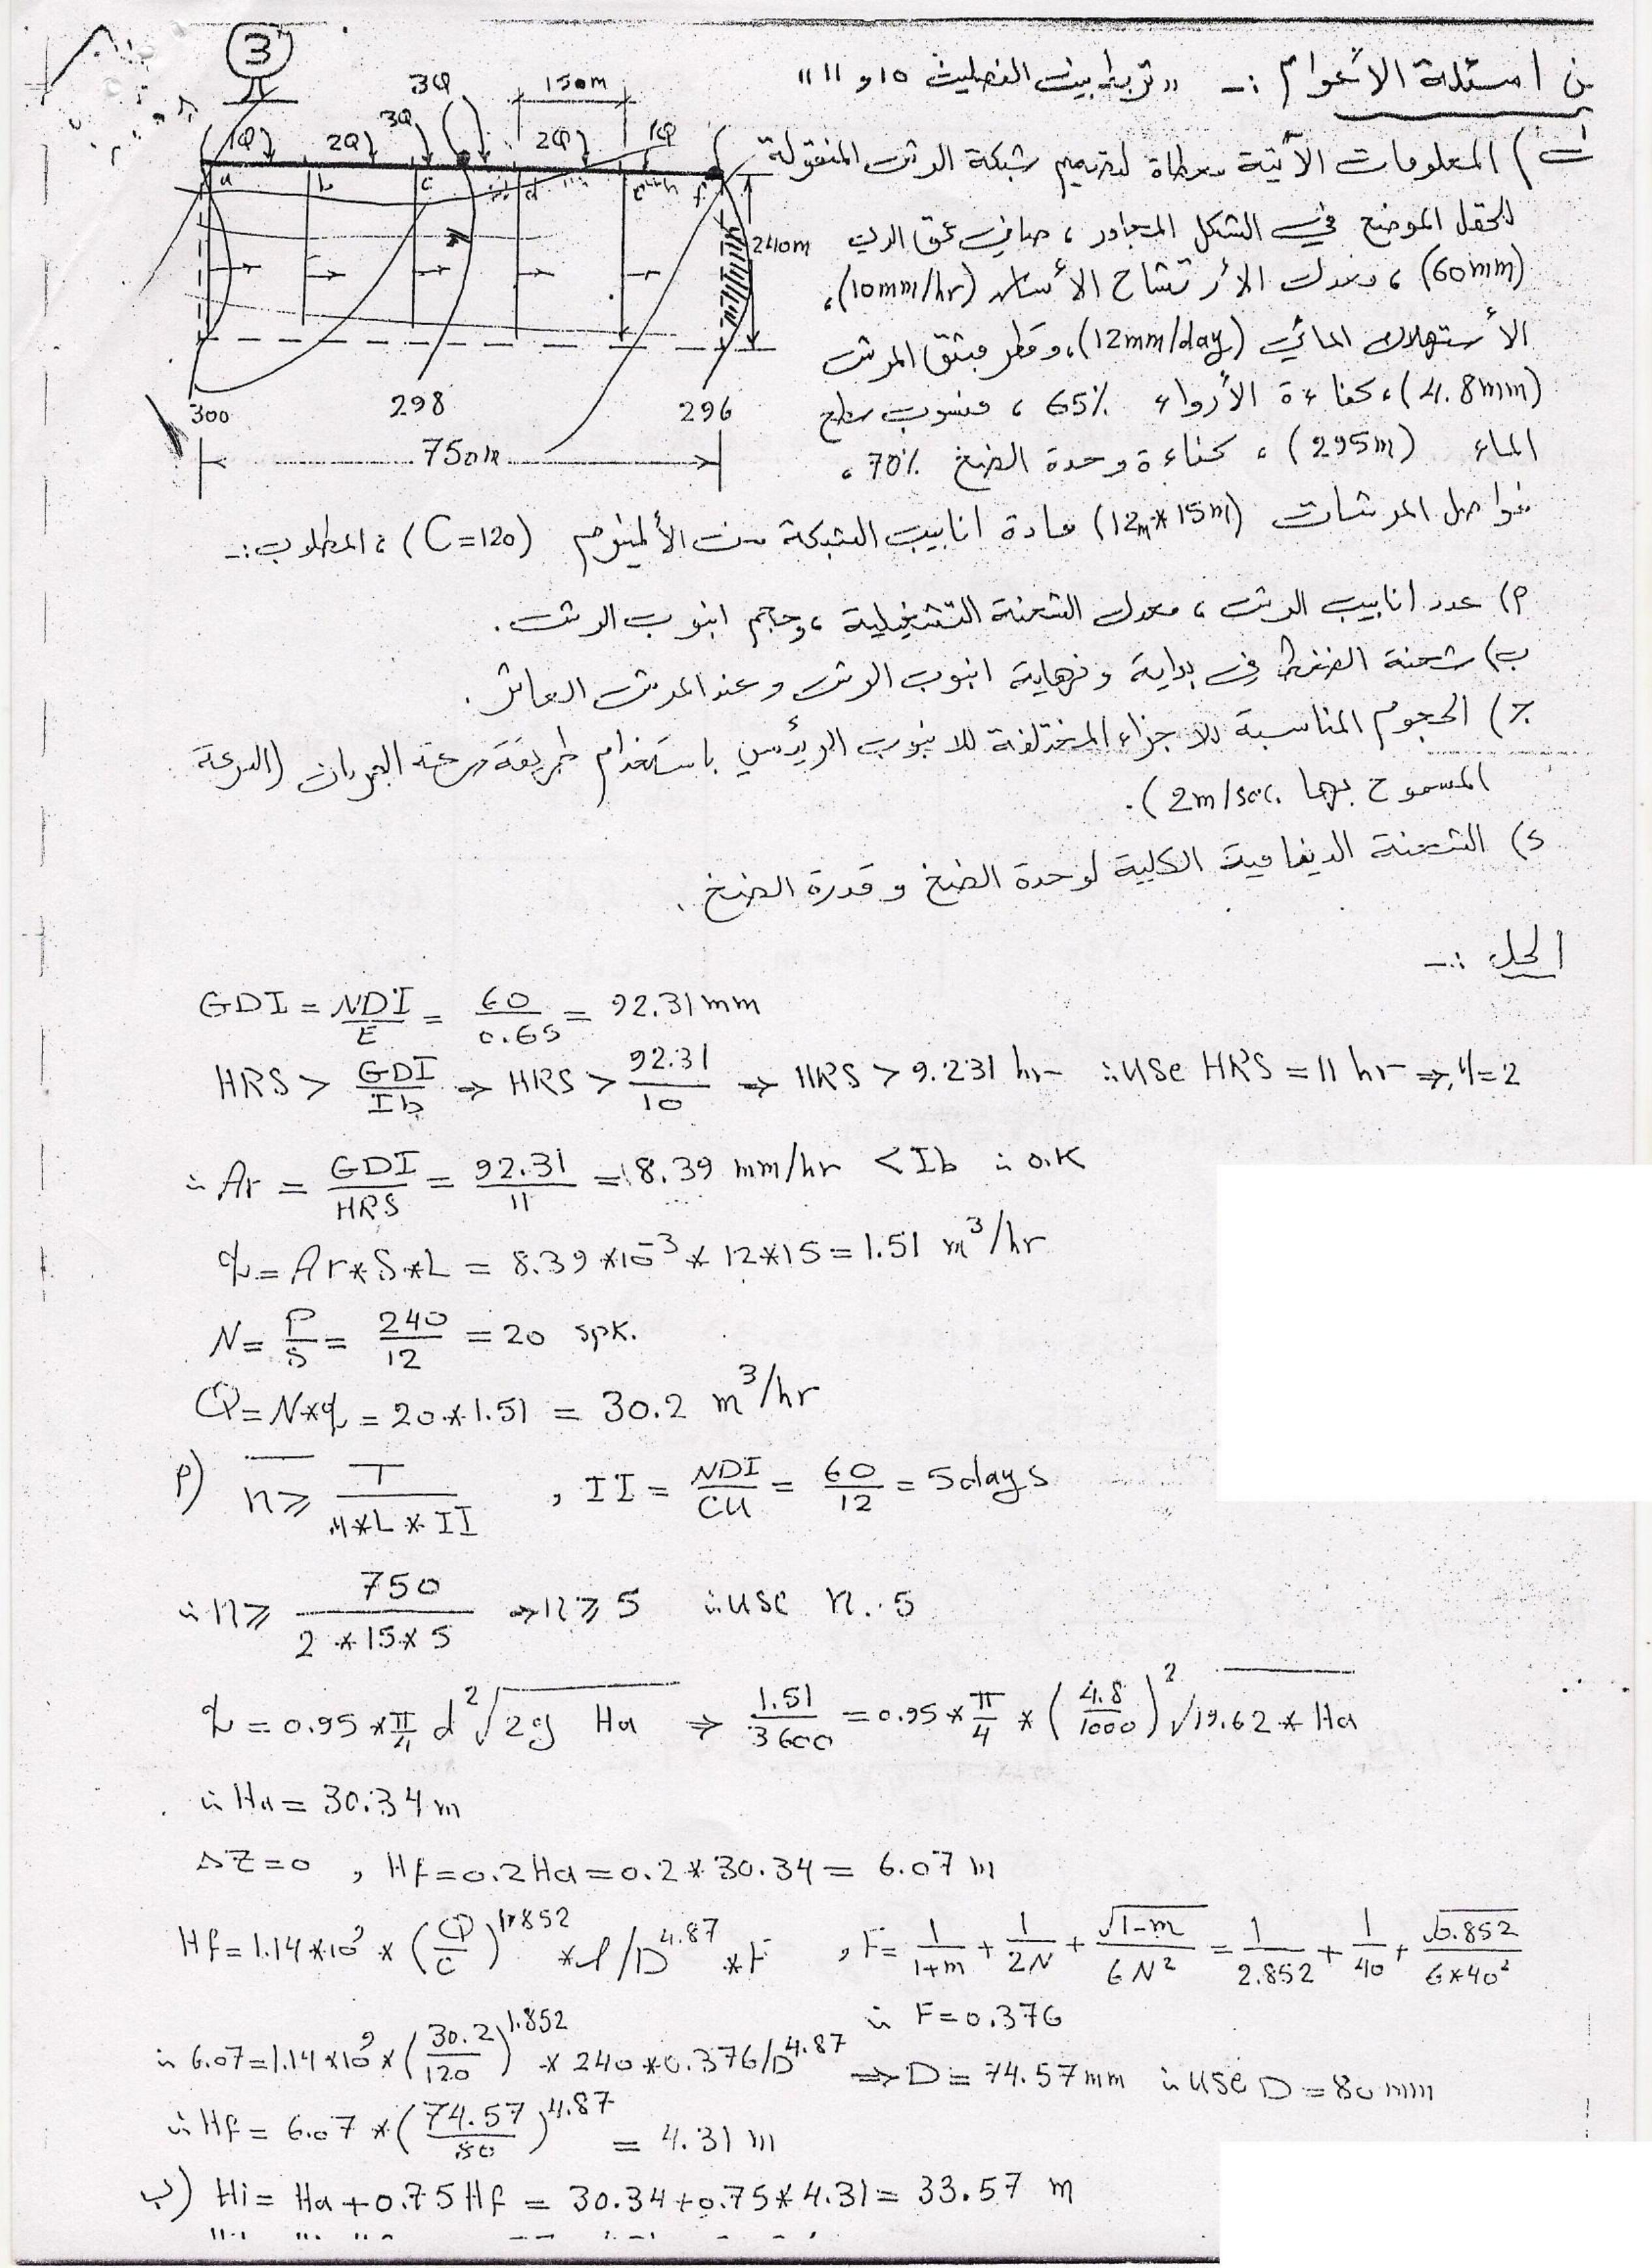 3
من اسئلة الأعوام :- "تربط بين الفصلين 10 و 11"
3Q 150m
1Q 2Q 3Q 2Q 1Q
a b c d e f
240m
300 298 296
750m
) المعلومات الآتية معطاة لتصميم شبكة الرش المنقولة
للحقل الموضح في الشكل المجاور ، صافي عمق الري
(60mm) ، معدل الأرتشاح الأساس (10mm/hr)،
الأستهلاك المائي (12mm/day)، وقطر مبثق المرش
(4.8mm)، كفاءة الأرواء 65% ، منسوب سطح
الماء (295m) ، كفاءة وحدة الضخ 70% ،
فواصل المرشات (12m*15m) مادة انابيب الشبكة من الألمنيوم (C=120) ، المطلوب:-
م) عدد انابيب الرش ، معدل الشحنة التشغيلية ، وحجم انبوب الرش.
ب) شحنة الضغط في بداية ونهاية انبوب الرش وعند المرش العاشر.
ج) الحجوم المناسبة للاجزاء المختلفة للانبوب الرئيسي باستخدام طريقة سرعة الجريان (السرعة
المسموح بها 2m/sec).
د) الشحنة الديناميية الكلية لوحدة الضخ و قدرة الضخ.
الحل :-
GDI = NDI/E = 60/0.65 = 92.31 mm
HRS > GDI/Ib ⇒ HRS > 92.31/10 ⇒ HRS > 9.231 hr ∴ use HRS = 11 hr ⇒ M=2
∴ Ar = GDI/HRS = 92.31/11 = 8.39 mm/hr < Ib ∴ O.K
q = Ar*S*L = 8.39*10^-3 * 12*15 = 1.51 m³/hr
N = P/S = 240/12 = 20 spk.
Q = N*q = 20*1.51 = 30.2 m³/hr
م) n ≥ T/(M*L*II) , II = NDI/CU = 60/12 = 5 days
∴ n ≥ 750/(2*15*5) ⇒ n ≥ 5 ∴ use n = 5
q = 0.95 * π/4 d² √2g Ha ⇒ 1.51/3600 = 0.95 * π/4 * (4.8/1000)² √19.62 * Ha
∴ Ha = 30.34 m
ΔZ = 0 , Hf = 0.2 Ha = 0.2 * 30.34 = 6.07 m
Hf = 1.14*10⁹ * (Q/C)^1.852 * l/D^4.87 * F , F = 1/(1+m) + 1/2N + √1-m/6N² = 1/2.852 + 1/40 + √0.852/(6*40²)
∴ F = 0.376
∴ 6.07 = 1.14*10⁹ * (30.2/120)^1.852 * 240*0.376/D^4.87 ⇒ D = 74.57 mm ∴ use D = 80 mm
∴ Hf = 6.07 * (74.57/80)^4.87 = 4.31 m
ب) Hi = Ha + 0.75 Hf = 30.34 + 0.75*4.31 = 33.57 m